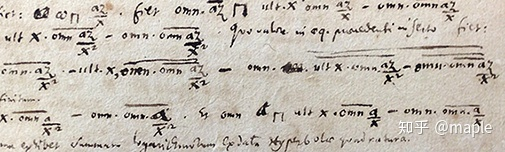 ω ⊓ az/x . fiet omn. az/x ⊓ ult. x omn az/x − omn. omn az/x
ult. x omn az/x² − omn. omn az/x² . Quo valore in eq. praecedenti inserto fiet:
omn. az/x² − ult. x, omn. omn az/x² − omn. ult x. omn. az/x² − omn. omn az/x²
x. omn a/x − omn. omn. a/x . Et omn ⊓ ult x omn a/x − omn. omn. a/x
exhibet summam logarithmorum ex data Hyperbolae quadratura.
知乎 @maple